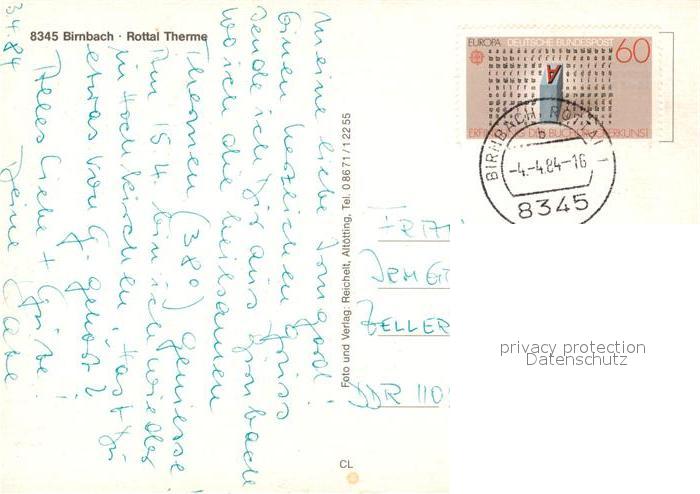 8345 Birnbach · Rottal Therme
3.4.84
Meine liebe Irmgard!
Einen herzlichen Gruss
sende ich Dir aus Birnbach
wo ich die heilsamen
Thermen (38°) geniesse!
Am 15.4. bin ich wieder
in Hochkirchen. Hast Du
etwas von G. gehört?
Alles Liebe + Grüße!
Deine
Foto und Verlag: Reichelt, Altötting, Tel. 08671/12255
CL
EUROPA DEUTSCHE BUNDESPOST 60
A
ERFINDUNG DER BUCHDRUCKERKUNST
BIRNBACH, ROTTAL 1
b
-4.-4.84-16
8345
FRAU
IRMG
ZELLER
DDR 110
privacy protection
Datenschutz